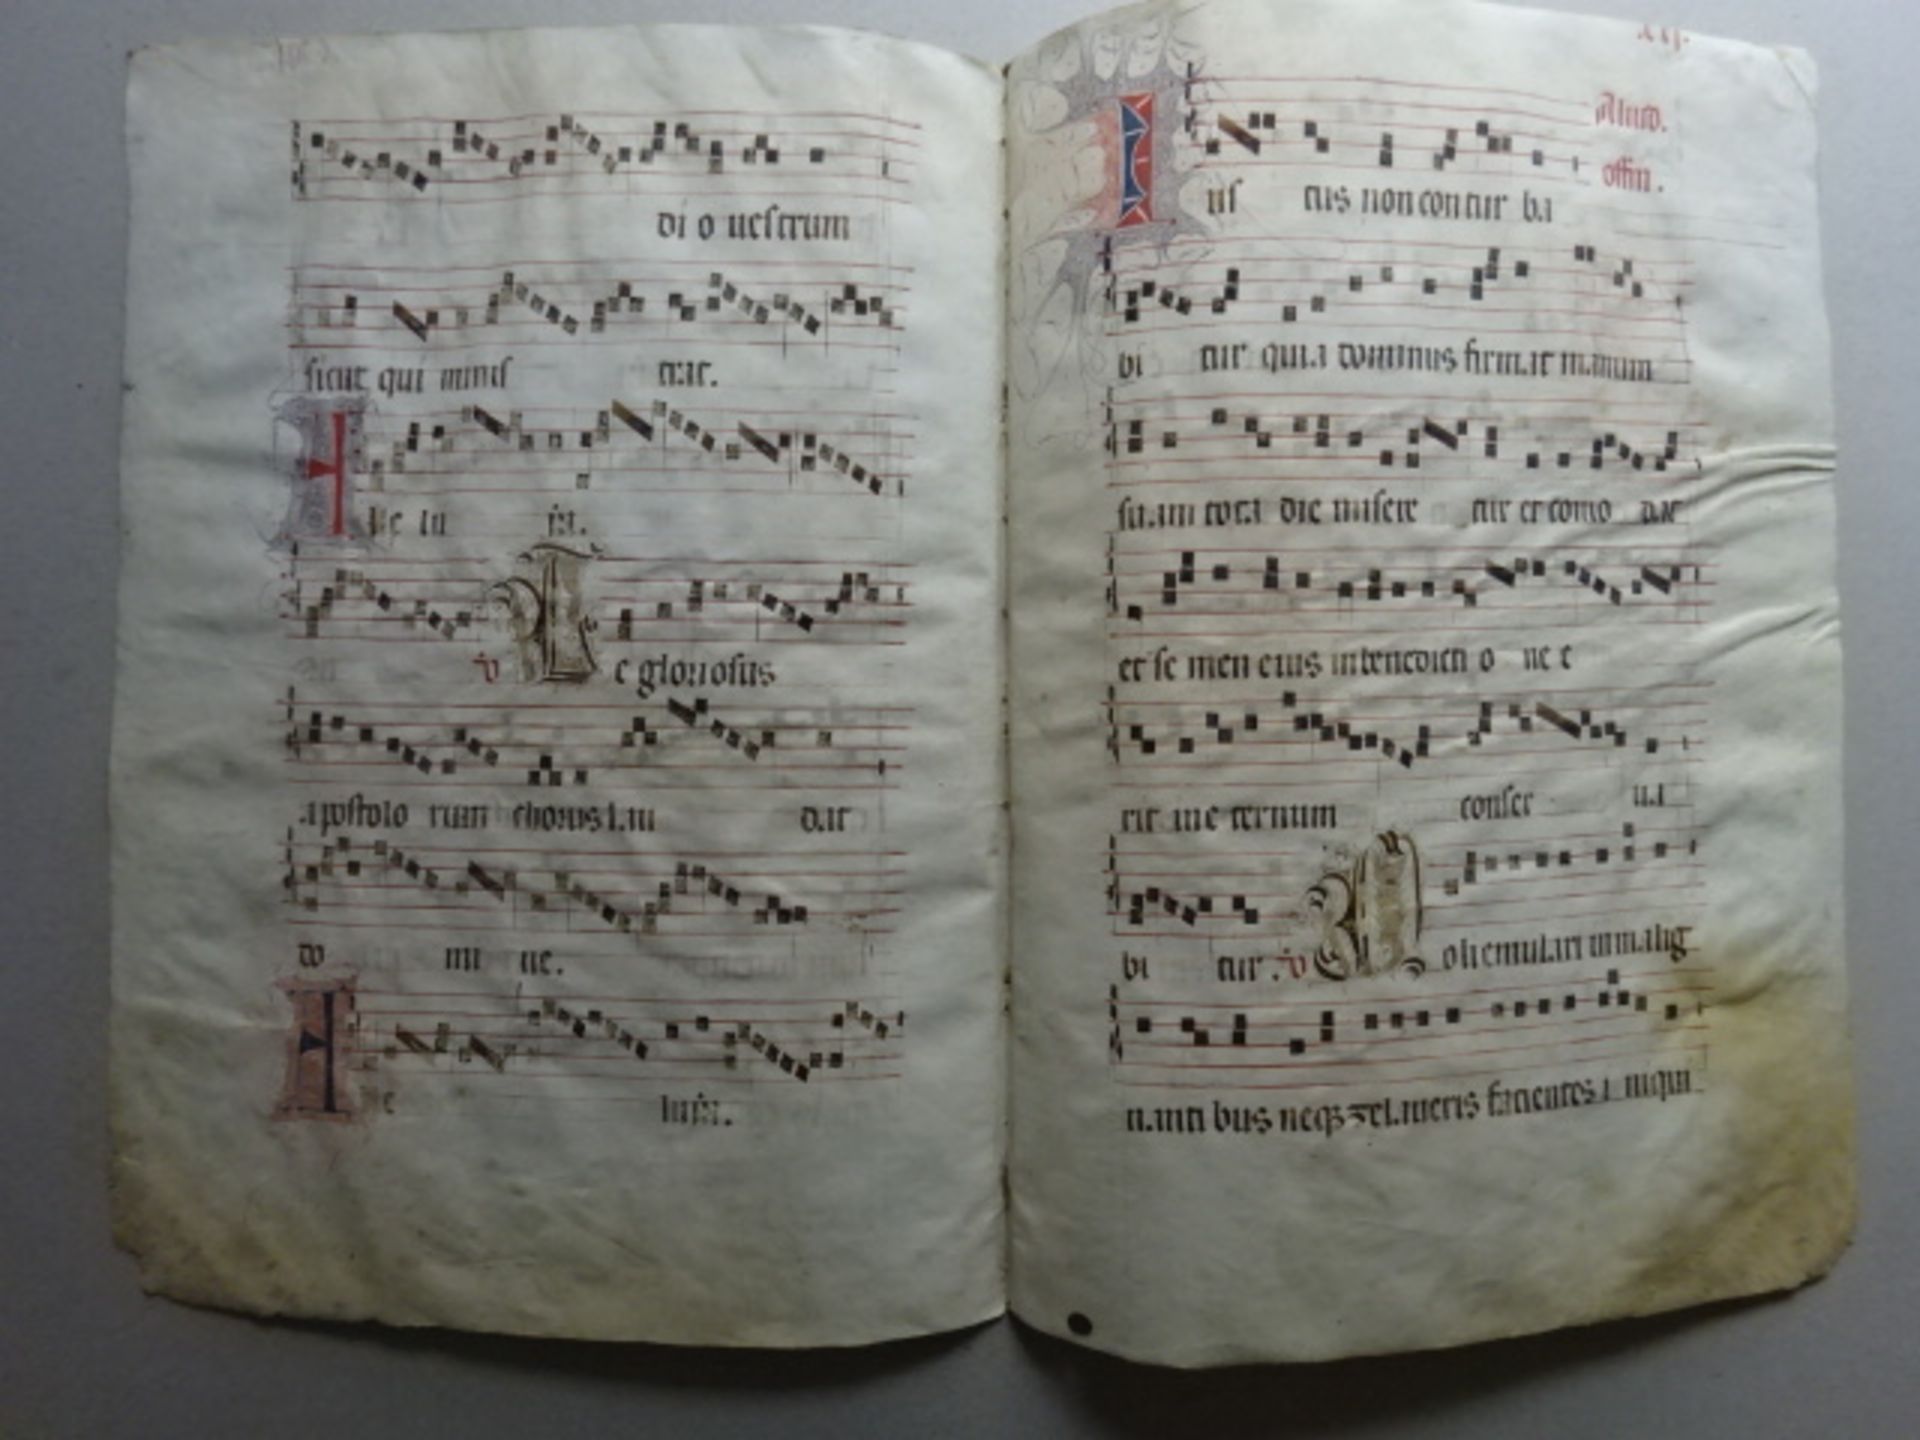 di o uestrum
sicut qui minis trat.
Alle lu ia.
V Te gloriosus
apostolo rum chorus lau dat
do mi ne.
Alle luia.
Aliud.
offm.
Ius tus non con tur ba
bi tur quia dominus firmat manum
suam tota die misere tur et como dat
et se men eius in benedicti o ne e
rit in e ternum conser ua
bi tur. V Noli emulari in malig
nanti bus neqz zelaueris facientes i niqui